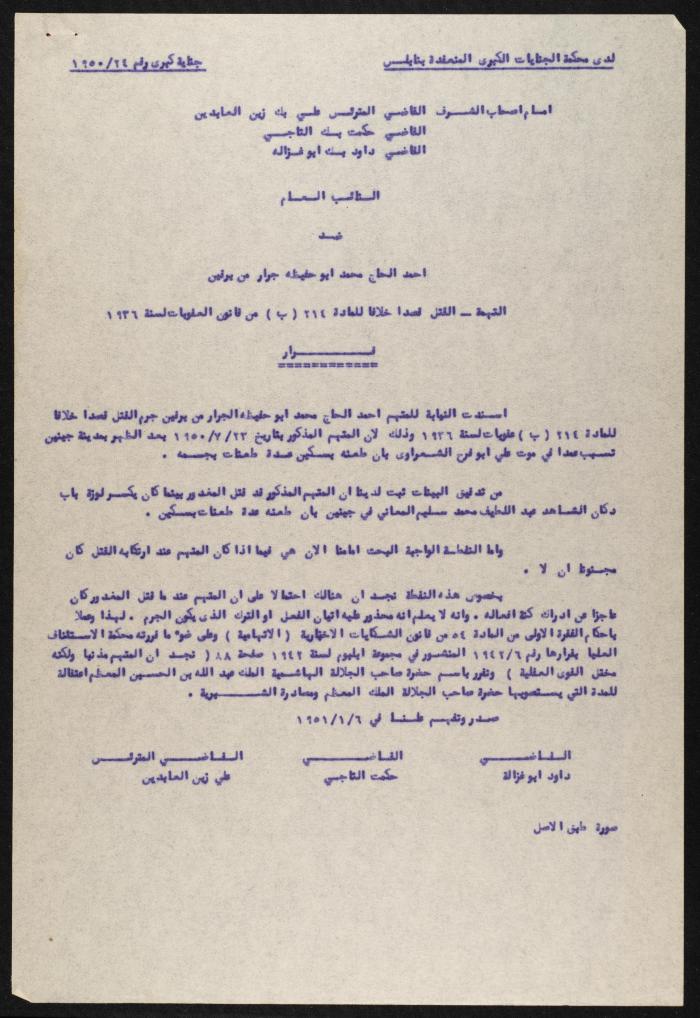 لدى محكمة الجنايات الكبرى المنعقدة بنابلس
جناية كبرى رقم ١٩٥٠/٢٤
امام اصحاب الشرف القاضي المترئس علي بك زين العابدين
القاضي حكمت بك التاجي
القاضي داود بك ابو غزاله
النائب العام
ضد
احمد الحاج محمد ابو حفيظه جرار من برقين
التهمة ـ القتل قصدا خلافا للمادة ٢١٤ ( ب ) من قانون العقوبات لسنة ١٩٣٦
قرار
============
اسندت النيابة للمتهم احمد الحاج محمد ابو حفيظه الجرار من برقين جرم القتل قصدا خلافا
للمادة ٢١٤ ( ب ) عقوبات لسنة ١٩٣٦ وذلك لان المتهم المذكور بتاريخ ١٩٥٠/٧/٢٣ بعد الظهر بمدينة جينين
تسبب عمدا في موت علي ابو فرح الشعراوى بان طعنه بسكين عدة طعنات بجسمه .
من تدقيق البينات ثبت لدينا ان المتهم المذكور قد قتل المغدور بينما كان يكسر لوزة باب
دكان الشاهد عبد اللطيف محمد سليم المعاني في جينين بان طعنه عدة طعنات بسكين .
واما النقطة الواجبة البحث امامنا الان هي فيما اذا كان المتهم عند ارتكابه القتل كان
مجنونا ان لا .
بخصوص هذه النقطة نجد ان هنالك احتمالا على ان المتهم عند ما قتل المغدور كان
عاجزا عن ادراك كنه افعاله . وانه لا يعلم انه محذور عليه اتيان الفعل او الترك الذى يكون الجرم . لهذا وعملا
باحكام الفقرة الاولى من المادة ٥٤ من قانون الشكايات الاخبارية ( الاتهامية ) وعلى ضوء ما قررته محكمة الاستئناف
العليا بقرارها رقم ١٩٤٢/٦ المنشور في مجموعة ابليوم لسنة ١٩٤٢ صفحة ٨٨ ( نجد ان المتهم مذنبا ولكنه
مختل القوى العقلية ) ونقرر باسم حضرة صاحب الجلالة الهاشمية الملك عبد الله بن الحسين المعظم اعتقاله
للمدة التي يستصوبها حضرة صاحب الجلالة الملك المعظم ومصادرة الشبرية .
صدر وتفهم علنا في ١٩٥١/١/٦
القاضي القاضي القاضي المترئس
داود ابو غزالة حكمت التاجي علي زين العابدين
صورة طبق الاصل